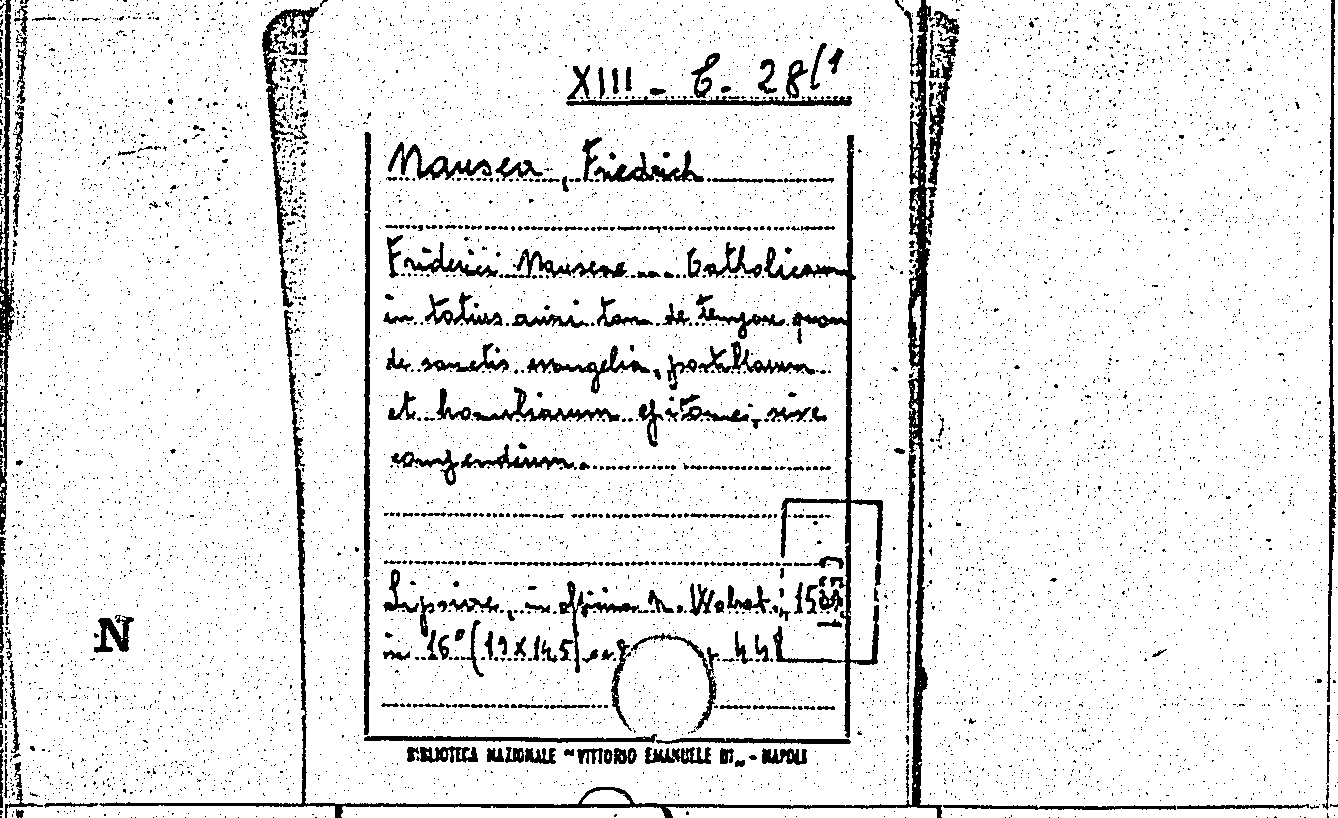 XIII - C. 28(1
Nausea, Friedrich
Friderici Nauseae ... Catholicarum
in totius anni tam de tempore quam
de sanctis evangelia, postillarum
et homiliarum epitome, sive
compendium.
Lipsiae, in officina N. Wolrab.,
in 16° (19x145) 441
N
BIBLIOTECA NAZIONALE "VITTORIO EMANUELE III" - NAPOLI